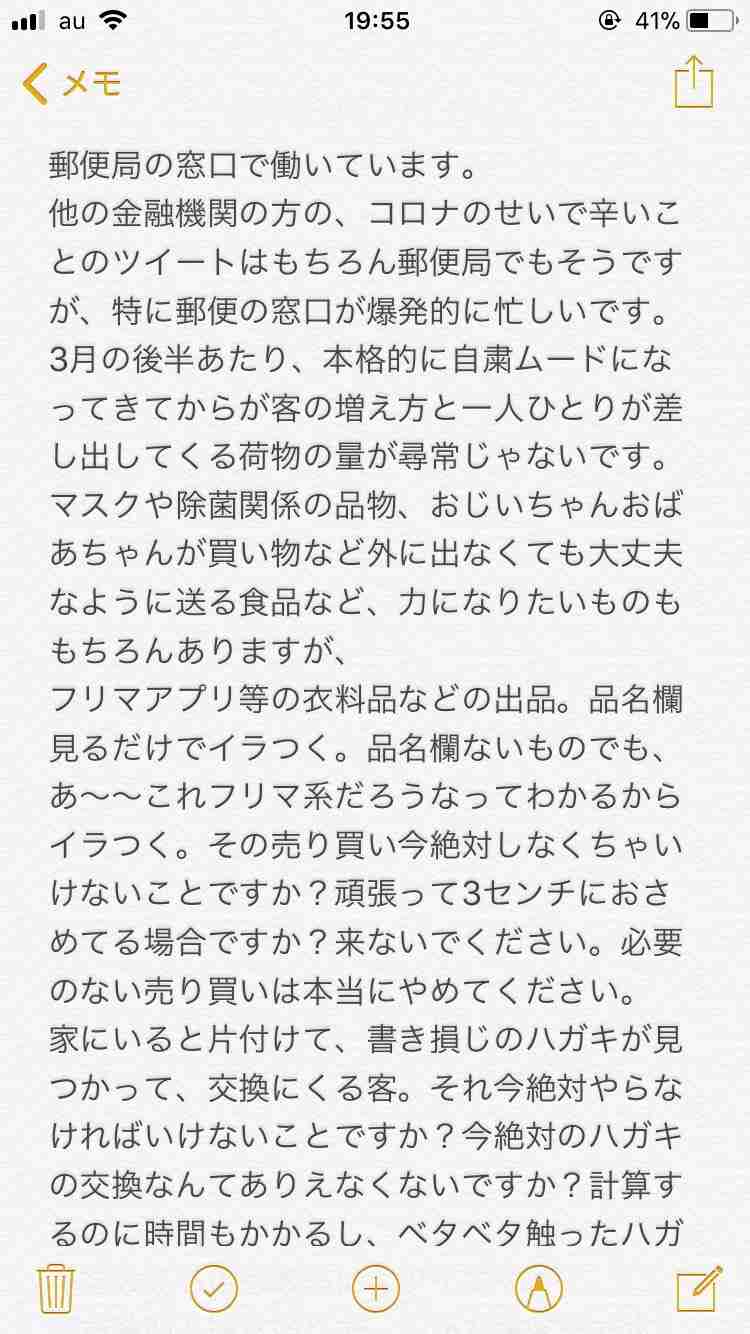 au 19:55 41%
メモ
郵便局の窓口で働いています。
他の金融機関の方の、コロナのせいで辛いこ
とのツイートはもちろん郵便局でもそうです
が、特に郵便の窓口が爆発的に忙しいです。
3月の後半あたり、本格的に自粛ムードにな
ってきてからが客の増え方と一人ひとりが差
し出してくる荷物の量が尋常じゃないです。
マスクや除菌関係の品物、おじいちゃんおば
あちゃんが買い物など外に出なくても大丈夫
なように送る食品など、力になりたいものも
もちろんありますが、
フリマアプリ等の衣料品などの出品。品名欄
見るだけでイラつく。品名欄ないものでも、
あ〜〜これフリマ系だろうなってわかるから
イラつく。その売り買い今絶対しなくちゃい
けないことですか？頑張って3センチにおさ
めてる場合ですか？来ないでください。必要
のない売り買いは本当にやめてください。
家にいると片付けて、書き損じのハガキが見
つかって、交換にくる客。それ今絶対やらな
ければいけないことですか？今絶対のハガキ
の交換なんてありえなくないですか？計算す
るのに時間もかかるし、ベタベタ触ったハガ